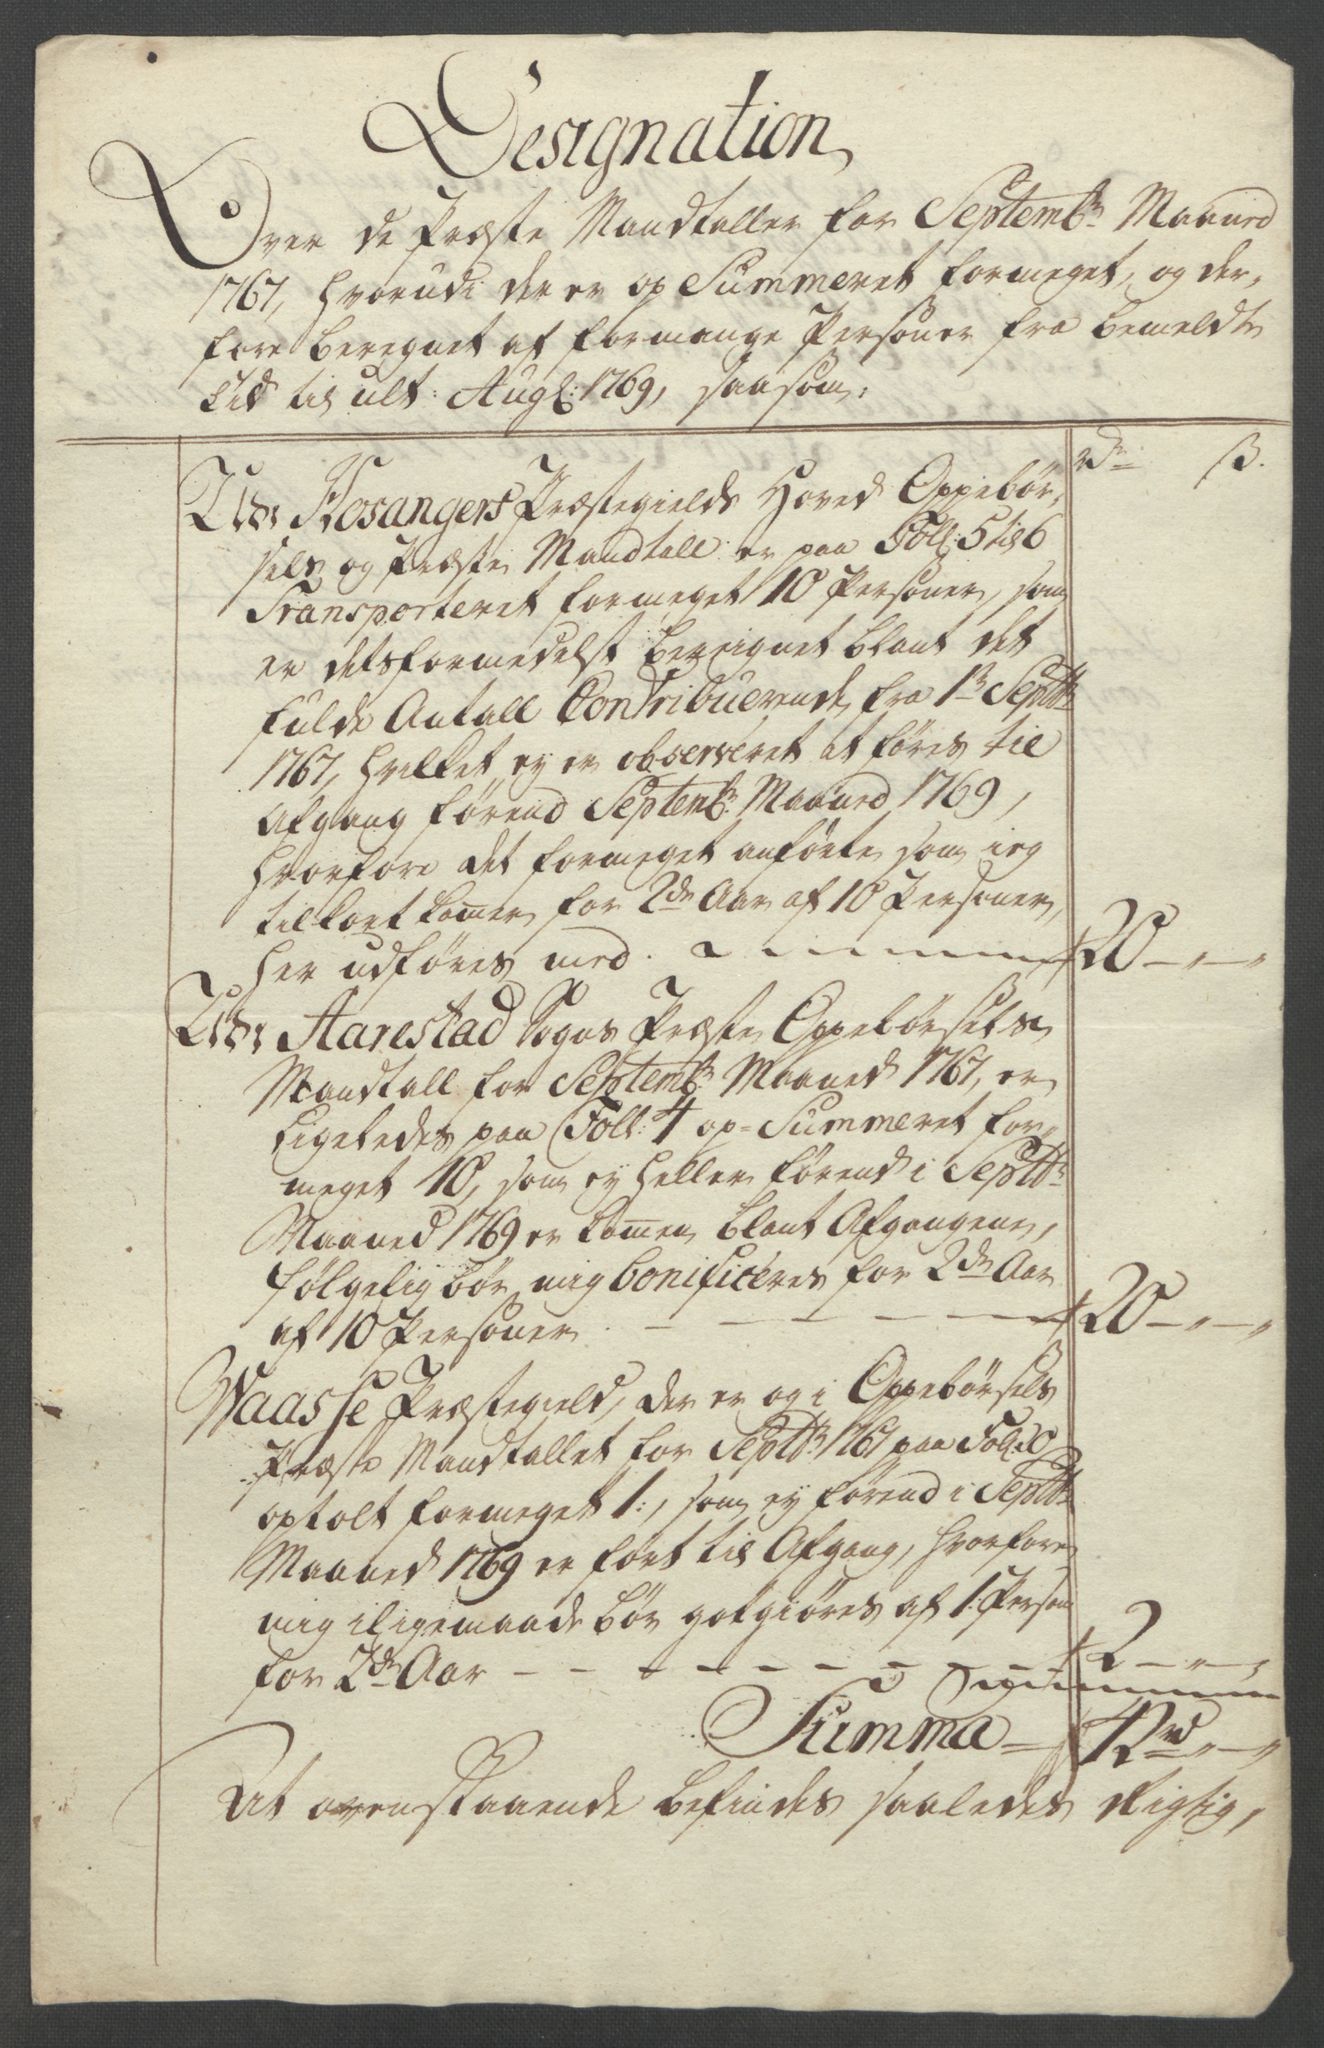 Designation
Over de Præste Mandtaller for Septembr: Maaned
1767, hvorudi der er op Summeret formeget, og der-
fore beregnet af formange Personer fra bemeldte
Tid til ult: Aug: 1769, saasom,
rdr ß.
Udi Hosangers Præstegields Hoved Oppebør-
sels og Præste Mandtall er paa Foll: 5 til 6
Transporteret formeget 10 Personer, som
er detsformedelst bereignet blant det
fulde Antall Contribuerende fra 1ste Septbr:
1767, hvilket ey er observeret at føris til
Afgang førend Septembr: Maaned 1769,
hvorfore det formeget anførte som ieg
tilkort kommer for 2de Aar af 10 Personer,
her udføres med 20 - " - "
Udi Aarestad Sogns Præste Oppebørsels
Mandtall for Septembr: Maaned 1767, er
Ligeledes paa Foll: 4 op-Summeret for-
meget 10, som ey heller førend i Septbr:
Maaned 1769 er kommen blant Afgangene,
følgelig bør mig bonificeres for 2de Aar
af 10 Personer 20 - " - "
Waasse Præstegield, der er og i Oppebørsels
Præste Mandtallet for Septbr: 1767 paa Foll:
optalt formeget 1:, som ey førend i Septbr:
Maaned 1769 er ført til Afgang, hvorfore
mig iligemaade bør godgiøres af 1: Person
for 2de Aar 2 - " - "
Summa 42 rd - " - "
At ovenstaaende befindes saaledes Rigtig,